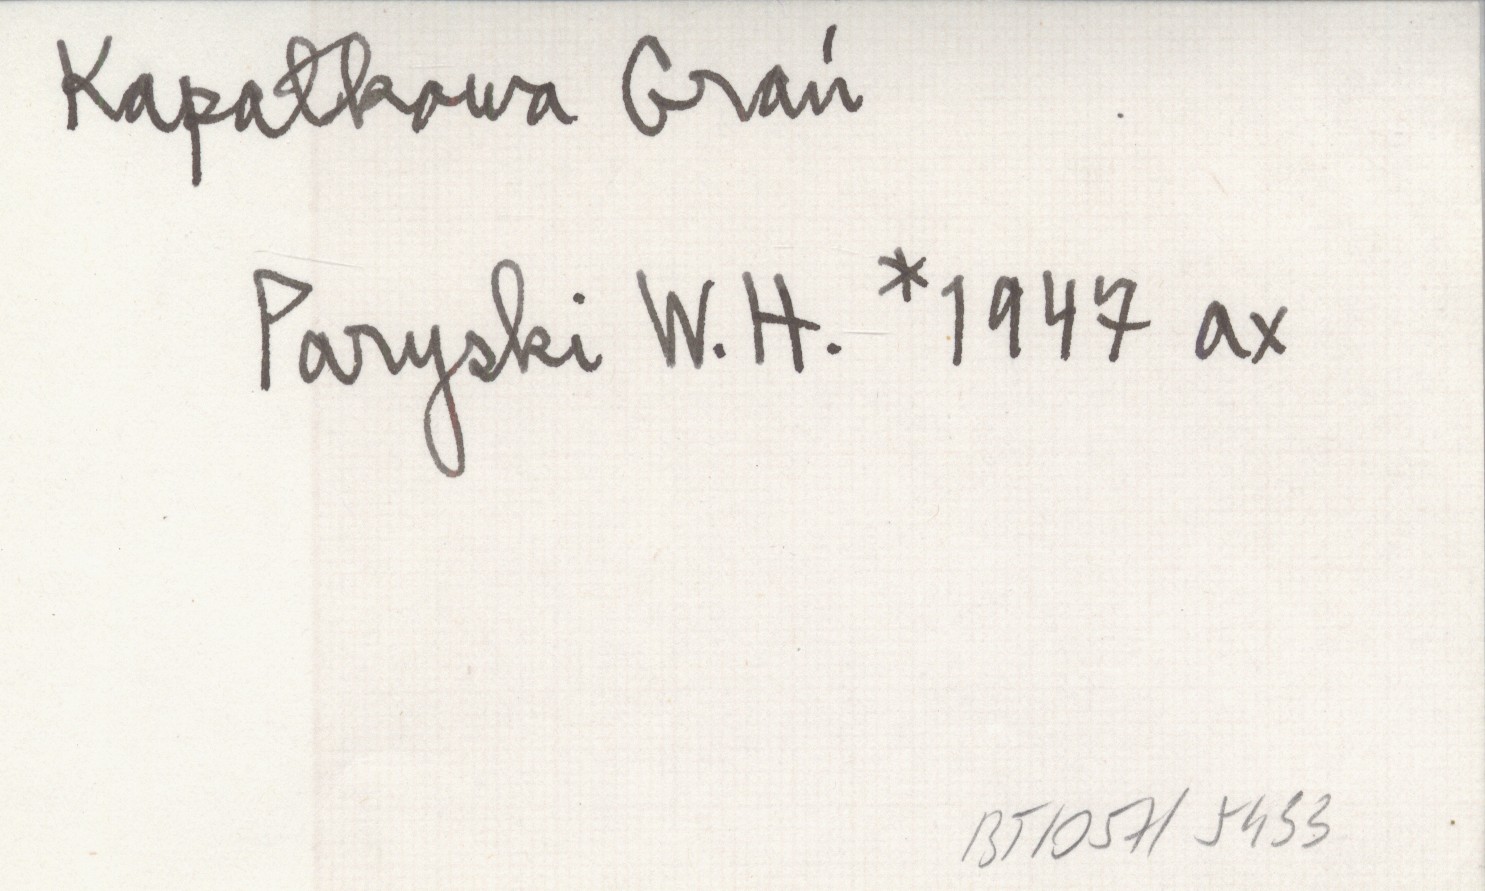 Kapałkowa Grań
Paryski W.H. *1947 ax
BT/057/ 5433